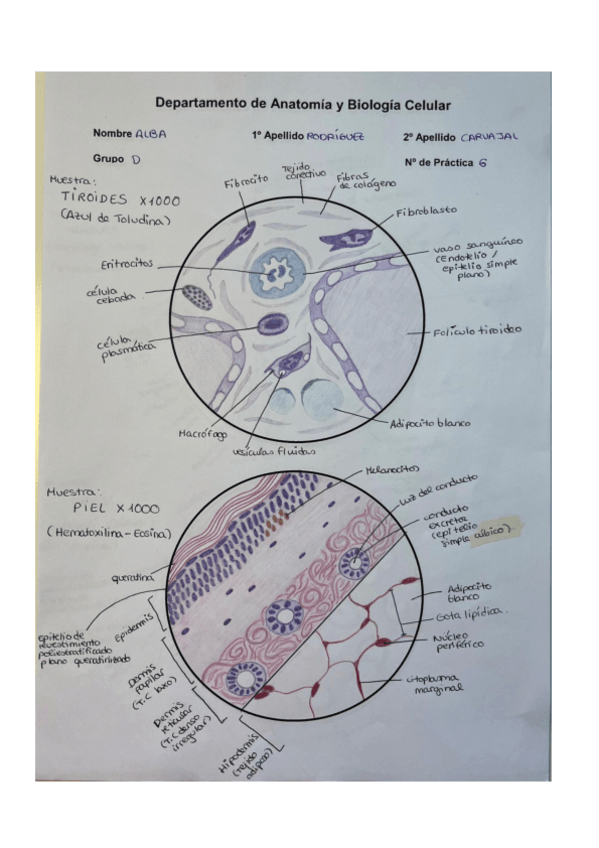 Departamento de Anatomía y Biología Celular
Nombre ALBA 1º Apellido RODRÍGUEZ 2º Apellido CARVAJAL
Grupo D Nº de Práctica 6
Muestra:
TIROIDES X1000
(Azul de Toludina)
Fibrocito
Tejido
conectivo
Fibras
de colágeno
Fibroblasto
Eritrocitos
vaso sanguíneo
(endotelio /
epitelio simple
plano)
célula
cebada
célula
plasmática
Folículo tiroideo
Macrófago
vesículas fluidas
Adipocito blanco
Muestra:
PIEL X1000
(Hematoxilina-Eosina)
Melanocitos
Luz del conducto
conducto
excretor
(epitelio
simple cúbico)
queratina
epitelio de
revestimiento
poliestratificado
plano queratinizado
Epidermis
Dermis
papilar
(T.C laxo)
Dermis
reticular
(T.C denso
irregular)
Hipodermis
(Tejido
adiposo)
Adipocito
blanco
Gota lipídica.
Núcleo
periférico
citoplasma
marginal